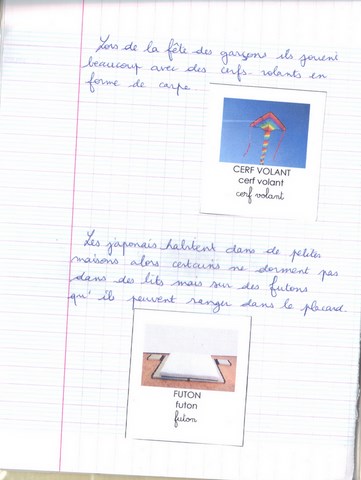 Lors de la fête des garçons ils jouent
beaucoup avec des cerfs-volants en
forme de carpe
CERF VOLANT
cerf volant
cerf volant
Les japonais habitent dans de petites
maisons alors certains ne dorment pas
dans des lits mais sur des futons
qu'ils peuvent ranger dans le placard.
FUTON
futon
futon